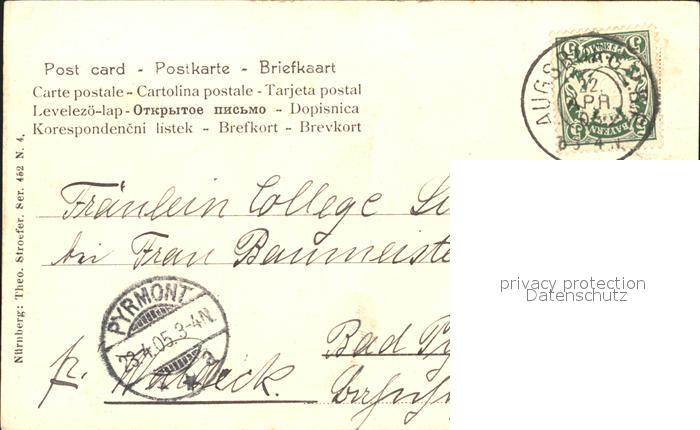 Post card - Postkarte - Briefkaart
Carte postale - Cartolina postale - Tarjeta postal
Levelező-lap - Открытое письмо - Dopisnica
Korespondenční listek - Brefkort - Brevkort
Nürnberg: Theo. Stroefer. Ser. 452 N. 4.
AUGSBURG
BAYERN
5
Fräulein College
bei Frau Baumeiste
PYRMONT
23.4.05.3-4N.
Bad Py
p. Waldeck.
privacy protection
Datenschutz